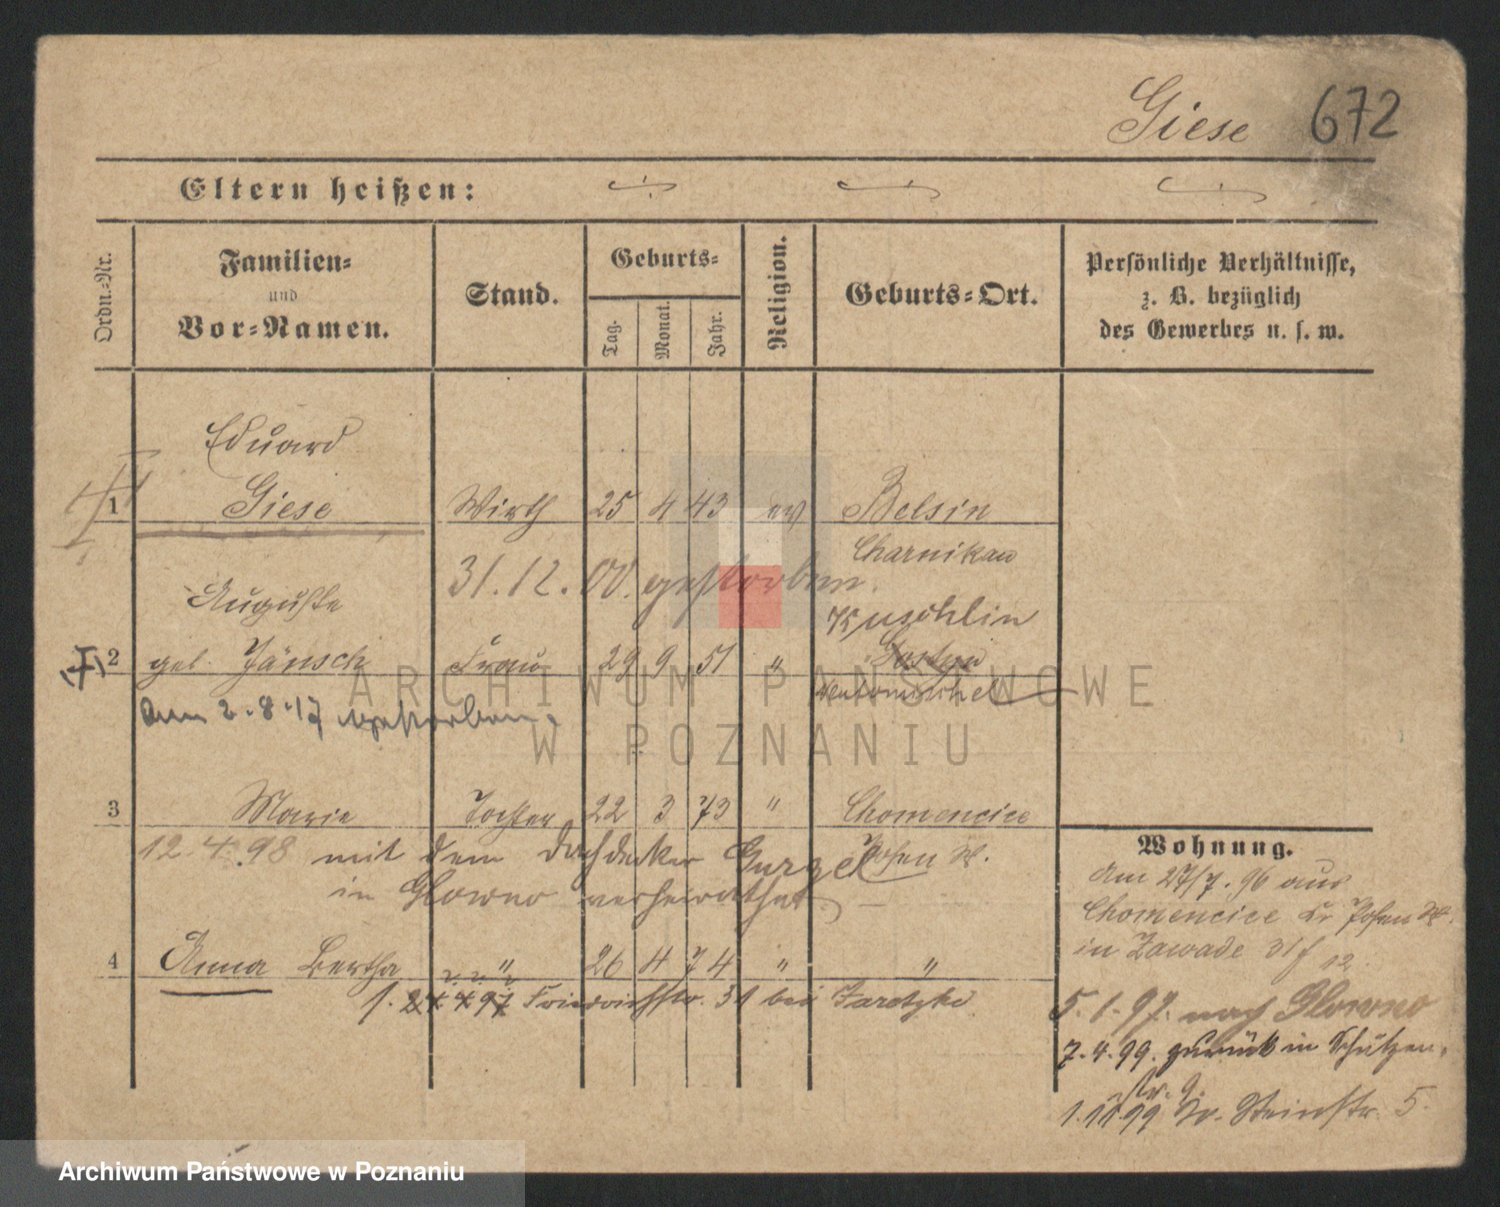 Giese 672
Eltern heißen:
Ordn.-Nr.
Familien-
und
Vor-Namen.
Stand.
Geburts-
Tag.
Monat.
Jahr.
Religion.
Geburts-Ort.
Persönliche Verhältnisse,
z. B. bezüglich
des Gewerbes u. s. w.
Eduard
1 Giese Wirth 25 4 43 ev Belsin
Charnikau
31.12.00. gestorben.
Auguste
Kuschlin
2 geb. Jänsch Frau 29 9 51 " Gostyn
am 2.8.17 gestorben.
3 Marie Tochter 22 3 73 " Chomencice
Posen W.
12 4.98 mit dem Dachdecker Gurzel
in Glowno verheirathet
4 Anna Bertha " 26 4 74 " "
1. 4 97 Friedrichstr. 31 bei Zaretzke
Wohnung.
am 27/7. 96 aus
Chomencice Kr Posen W.
in Zawade 31 f 12
5.1.97. nach Glowno
7.4.99. zurück in Schützen-
str. 9.
1.11 99 Steinstr. 5.
ARCHIWUM PAŃSTWOWE
W POZNANIU
Archiwum Państwowe w Poznaniu